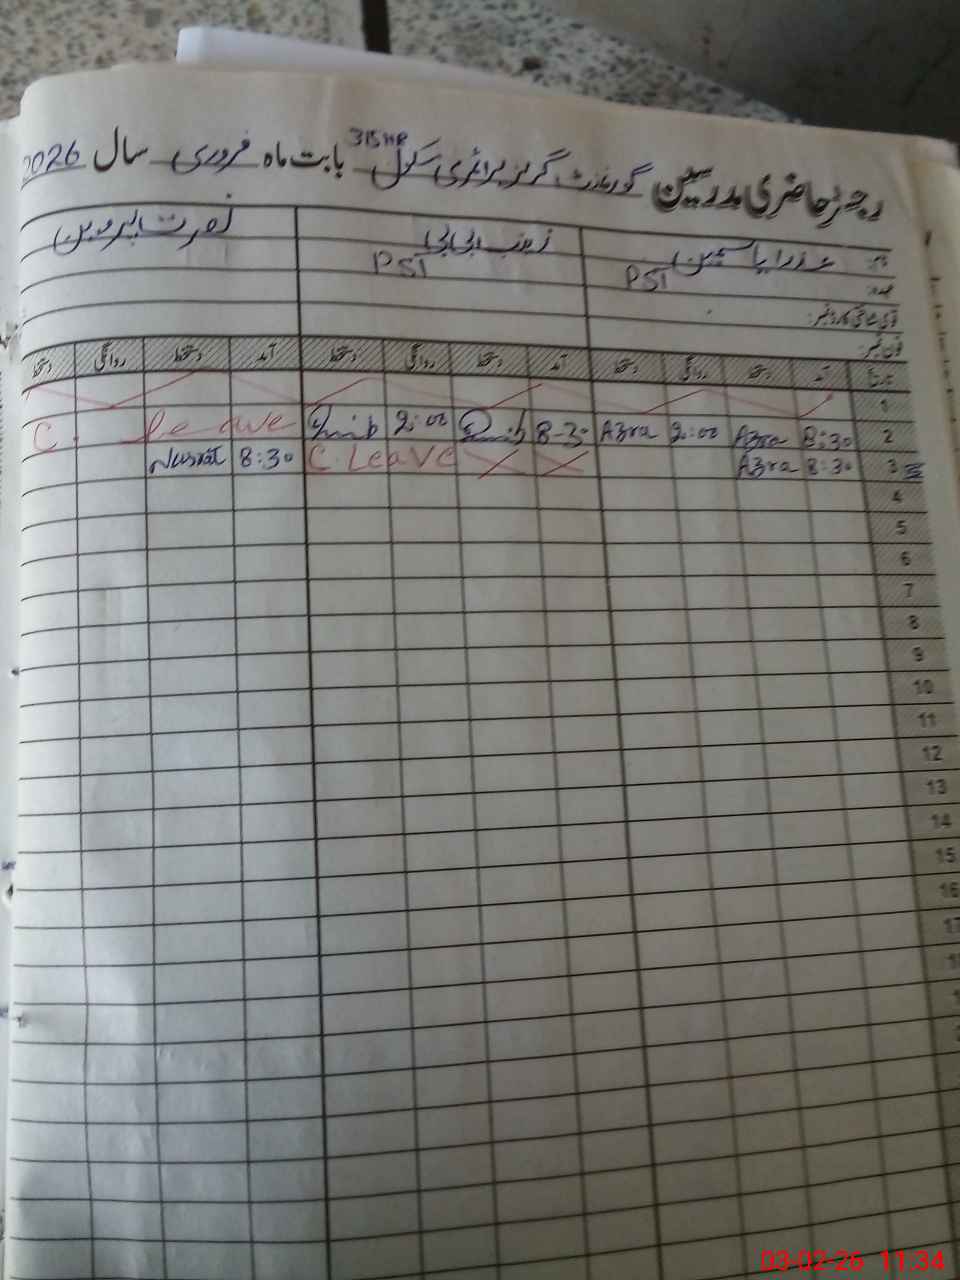 رجسٹر حاضری مدرسین گورنمنٹ گرلز پرائمری سکول 315HR بابت ماہ فروری سال 2026
نام: عذرا یاسمین زینب بی بی نصرت پروین
عہدہ: PST PST
قومی شناختی کارڈ نمبر:
فون نمبر:
تاریخ آمد دستخط روانگی دستخط آمد دستخط روانگی دستخط آمد دستخط روانگی دستخط
1
2 8:30 Azra 2:00 Azra 8-30 2:00 C. leave
3 8:30 Azra C. Leave 8:30 Nusrat
4
5
6
7
8
9
10
11
12
13
14
15
16
03-02-26 11:34